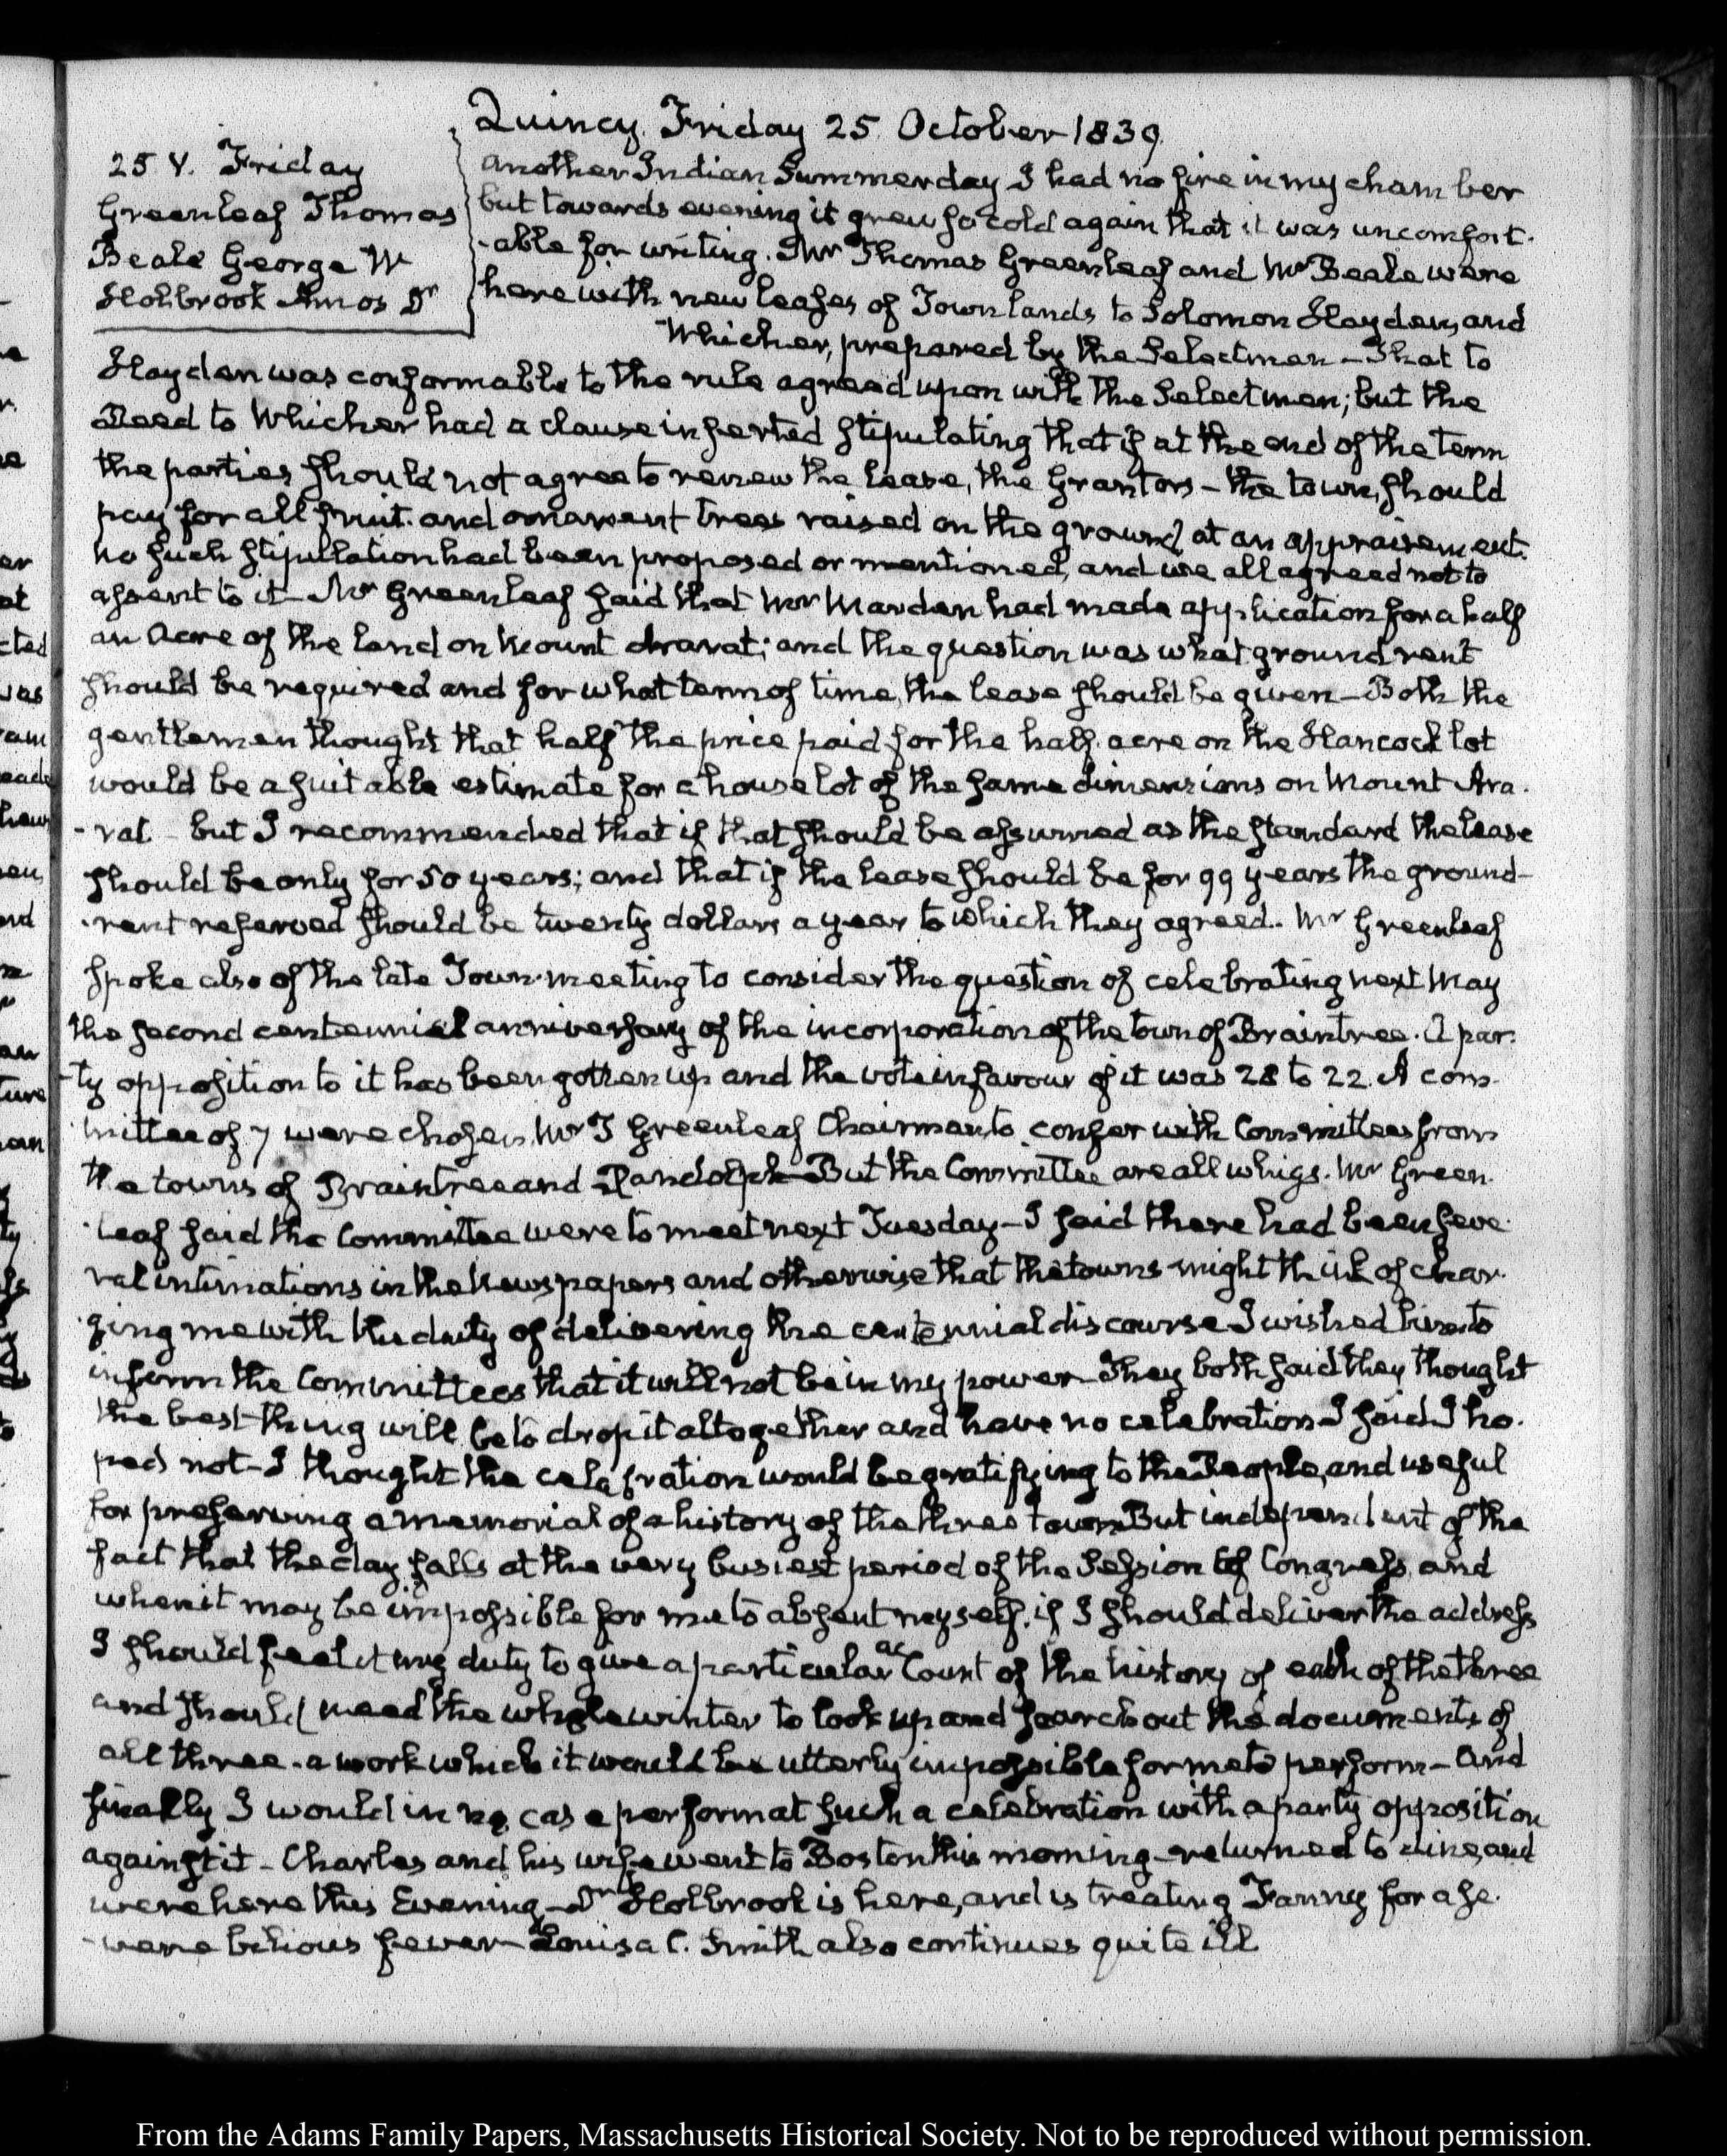 Quincy Friday 25 October 1839.
25. V. Friday
Greenleaf Thomas
Beale George W
Holbrook Amos Dr
another Indian Summer day I had no fire in my chamber
but towards evening it grew so cold again that it was uncomfort-
-able for writing. Mr Thomas Greenleaf and Mr Beale were
here with new leases of Town lands to Solomon Hayden, and
Whicher, prepared by the Selectmen – That to
Hayden was conformable to the rule agreed upon with the Selectmen; but the
Deed to Whicher had a clause inserted stipulating that if at the end of the term
the parties should not agree to renew the lease, the Grantors – the town, should
pay for all fruit and ornament trees raised on the ground, at an appraisement.
no such stipullation had been proposed or mentioned, and we all agreed not to
assent to it – Mr Greenleaf said that Mr Marden had made application for a half
an Acre of the land on Mount Ararat; and the question was what ground rent
should be required and for what term of time, the lease should be given – Both the
gentlemen thought that half the price paid for the half acre on the Hancock lot
would be a suitable estimate for a house lot of the same dimensions on Mount Ara-
-rat – but I recommended that if that should be assumed as the standard the lease
should be only for 50 years; and that if the lease should be for 99 years the ground-
-rent reserved should be twenty dollars a year to which they agreed. Mr Greenleaf
spoke also of the late Town-meeting to consider the question of celebrating next May
the second centennial anniversary of the incorporation of the town of Braintree. A par-
-ty opposition to it has been gotten up and the vote in favour of it was 28 to 22. A com-
mittee of 7 were chosen, Mr T Greenleaf Chairman, to confer with Committees from
the towns of Braintree and Randolph – But the Committee are all whigs. Mr Green-
-leaf said the Committee were to meet next Tuesday – I said there had been seve-
ral intimations in the Newspapers and otherwise that the towns might think of char-
-ging me with the duty of delivering the centennial discourse I wished him to
inform the Committees that it will not be in my power – They both said they thought
the best thing will be to drop it altogether and have no celebration – I said I ho-
ped not – I thought the celebration would be gratifying to the People, and useful
for preserving a memorial of a history of the three towns But independent of the
fact that the day falls at the very busiest period of the Session of Congress, and
when it may be impossible for me to absent myself, if I should deliver the address
I should feel it my duty to give a particular account of the history of each of the three
and should need the whole winter to look up and search out the documents of
all three – a work which it would be utterly impossible for me to perform – And
finally I would in no case perform at such a celebration with a party opposition
against it – Charles and his wife went to Boston this morning – returned to dine, and
were here this Evening – Dr Holbrook is here, and is treating Fanny for a se-
-vere bilious fever – Louisa C. Smith also continues quite ill
From the Adams Family Papers, Massachusetts Historical Society. Not to be reproduced without permission.